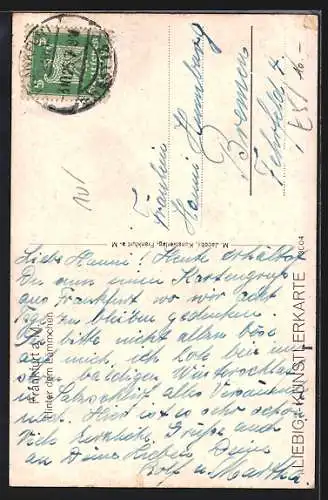 Fräulein
Hanni Hamburg
Bremen
Fehrfeld 4.
10/
16.-
M. Jacobs, Kunstverlag, Frankfurt a. M.
LIEBIG-KÜNSTLERKARTE
Frankfurt a. M.
Hinter dem Lämmchen
Liebe Hanni! Heute erhältst
Du nun einen Kartengruß
aus Frankfurt wo wir acht
Tage zu bleiben gedenken.
Sei bitte nicht allzu böse
auf mich, ich hole bei
baldigen
alles
nach. Hier ist es sehr schön.
Viele herzliche Grüße auch
an Deine Lieben Deine
Rolf u. Martha.